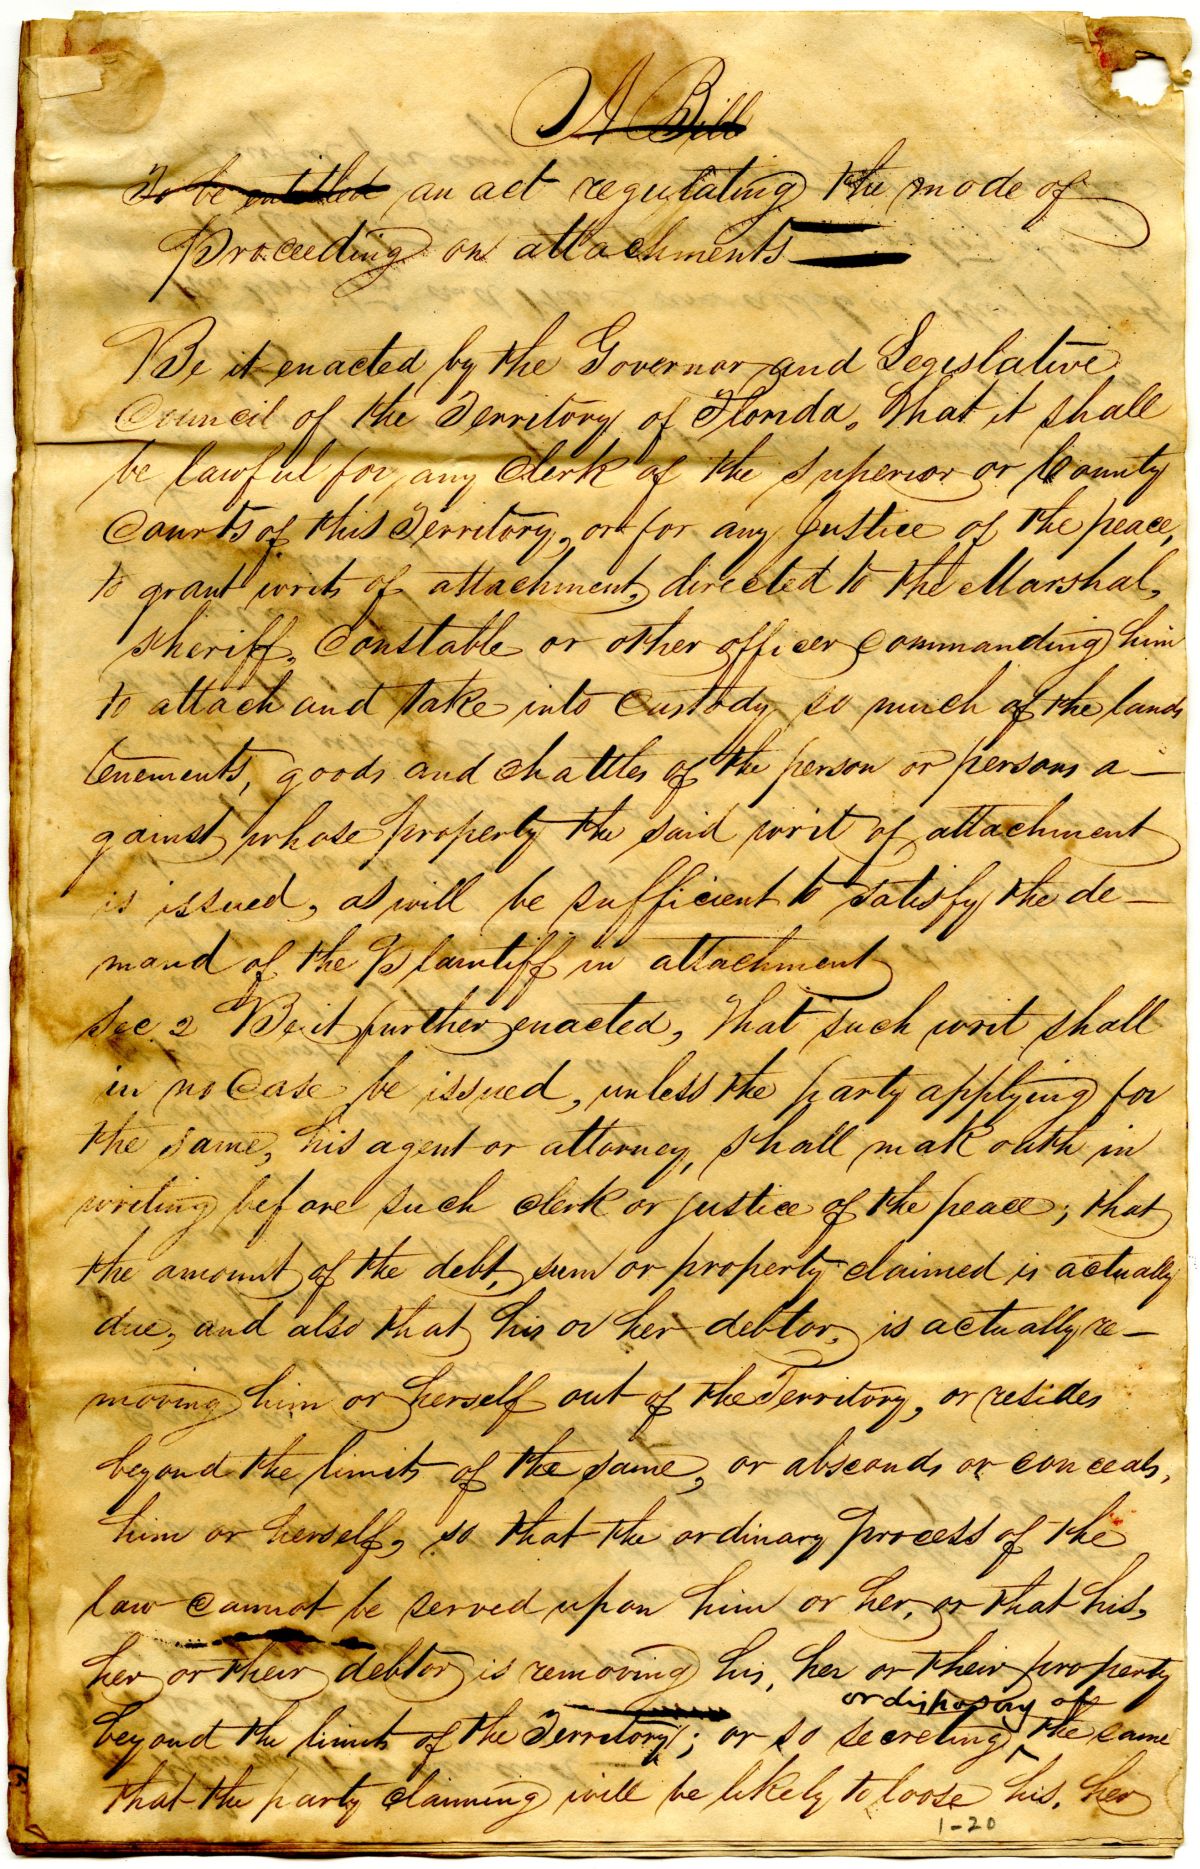 A Bill
To be entitled an act regulating the mode of
Proceeding on attachments
Be it enacted by the Governor and Legislative
Council of the Territory of Florida, That it shall
be lawful for any clerk of the superior or County
Courts of this Territory, or for any Justice of the peace,
to grant writs of attachment, directed to the Marshal,
sheriff, Constable or other officer commanding him
to attach and take into Custody so much of the lands
tenements, goods and chattles of the person or persons a—
gainst whose property the said writ of attachment
is issued, as will be sufficient to satisfy the de—
mand of the Plaintiff in attachment
Sec. 2 Be it further enacted, That such writ shall
in no Case be issued, unless the party applying for
the same, his agent or attorney, shall mak oath in
writing before such clerk or justice of the peace; that
the amount of the debt, sum or property claimed is actually
due, and also that his or her debtor, is actually re—
moving him or herself out of the Territory, or resides
beyond the limits of the same, or absconds or conceals,
him or herself, so that the ordinary process of the
law cannot be served upon him or her, or that his,
her or their debtor is removing his, her or their property
or disposing of
beyond the limits of the Territory; or so secreting the same
that the party claiming will be likely to loose his, her
1-20